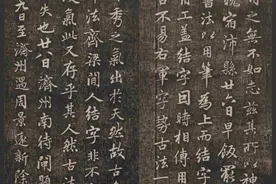 之無不如志茲其所以神
晚宿沛縣廿六日早飯罷
書法以用筆為上而結字
用工蓋結字因時相傳用
古不易右軍字勢古法一
秀之氣出於天然故古
法齊梁間人結字非不
氣此又存乎其人然古法
失也廿八日濟州南待閘題
九日至濟州遇周景遠新除